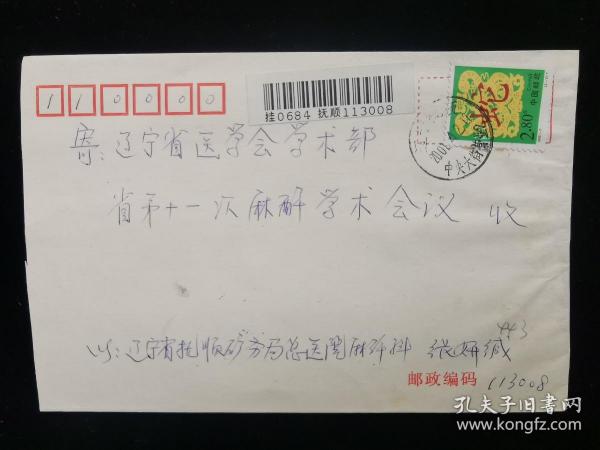 110000
挂0684 抚顺113008
中国邮政
2.80元
蛇
中央大街
寄:辽宁省医学会学术部
省第十一次麻醉学术会议 收
辽宁省抚顺矿务局总医院麻醉科 张妍
443
邮政编码 113008
孔夫子旧书网
www.kongfz.com